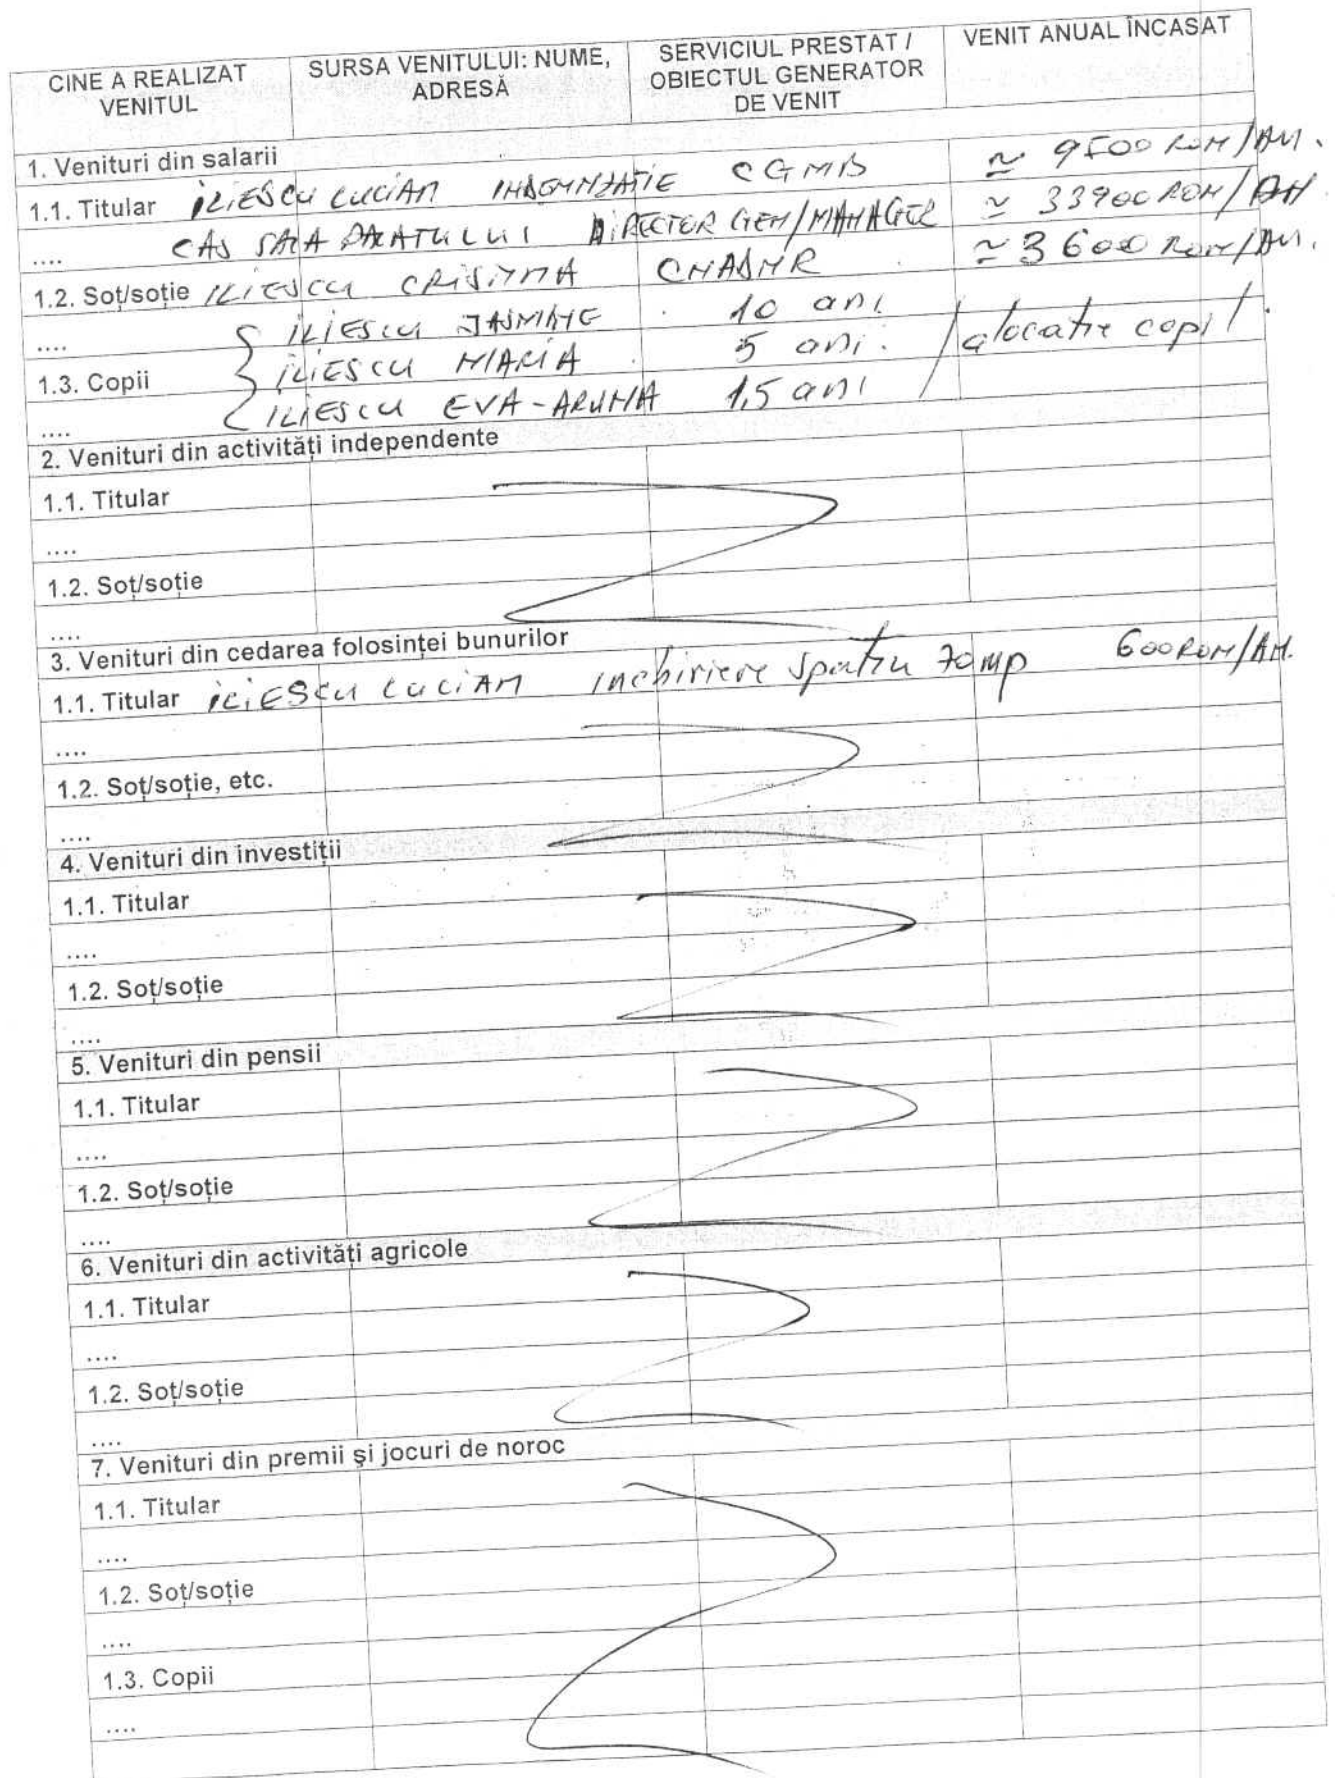 CINE A REALIZAT VENITUL
SURSA VENITULUI: NUME, ADRESĂ
SERVICIUL PRESTAT / OBIECTUL GENERATOR DE VENIT
VENIT ANUAL ÎNCASAT
1. Venituri din salarii
1.1. Titular ILIESCU LUCIAN INDEMNIZATIE CGMB ≃ 9500 RON/AN.
.... CAS SALA PALATULUI DIRECTOR GEN/MANAGER ≃ 33900 RON/AN
1.2. Soţ/soţie ILIESCU CRISTINA CNADNR ≃ 3600 RON/AN.
.... ILIESCU JASMINE 10 ani
1.3. Copii ILIESCU MARIA 5 ani. alocatie copil.
.... ILIESCU EVA-ARUNA 1,5 ani
2. Venituri din activităţi independente
1.1. Titular
....
1.2. Soţ/soţie
....
3. Venituri din cedarea folosinţei bunurilor
1.1. Titular ILIESCU LUCIAN inchiriere spatiu 70mp 600 RON/AN.
....
1.2. Soţ/soţie, etc.
....
4. Venituri din investiţii
1.1. Titular
....
1.2. Soţ/soţie
....
5. Venituri din pensii
1.1. Titular
....
1.2. Soţ/soţie
....
6. Venituri din activităţi agricole
1.1. Titular
....
1.2. Soţ/soţie
....
7. Venituri din premii şi jocuri de noroc
1.1. Titular
....
1.2. Soţ/soţie
....
1.3. Copii
....